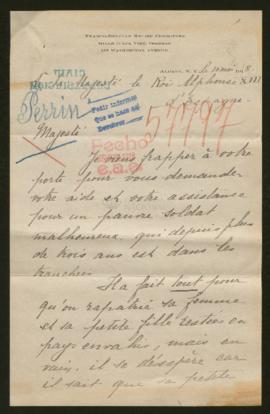 Franco-Belgian
Mlle
Washington Avenue
Albany, N. Y. le 1918.
A sa Majesté le Roi Alphonse XIII
d'Espagne
CIVIL
Perrin
Pedir informes
Que se hace así
Devolver
57797
Hecho
Majesté
Je viens frapper à votre
porte pour vous demander
votre aide et votre assistance
pour un pauvre soldat
malheureux qui depuis plus
de trois ans est dans les
tranchées
Il a fait tout pour
qu'on rapatrie sa femme
et sa petite fille restées en
pays envahis, mais en
vain, il se désespère car
il sait que sa petite